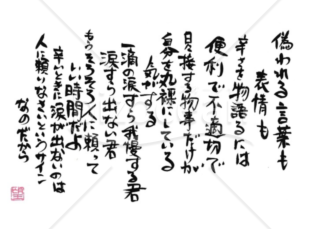 偽われる言葉も
表情も
辛さを物語るには
便利で不適切で
目に接する物事だけが
身を丸裸にしている
気がする
一滴の涙すら我慢する君
涙すら出ない君
もうそろそろ人に頼って
いい時間だよ
辛いときに涙が出ないのは
人に頼りなさいというサイン
なのだから